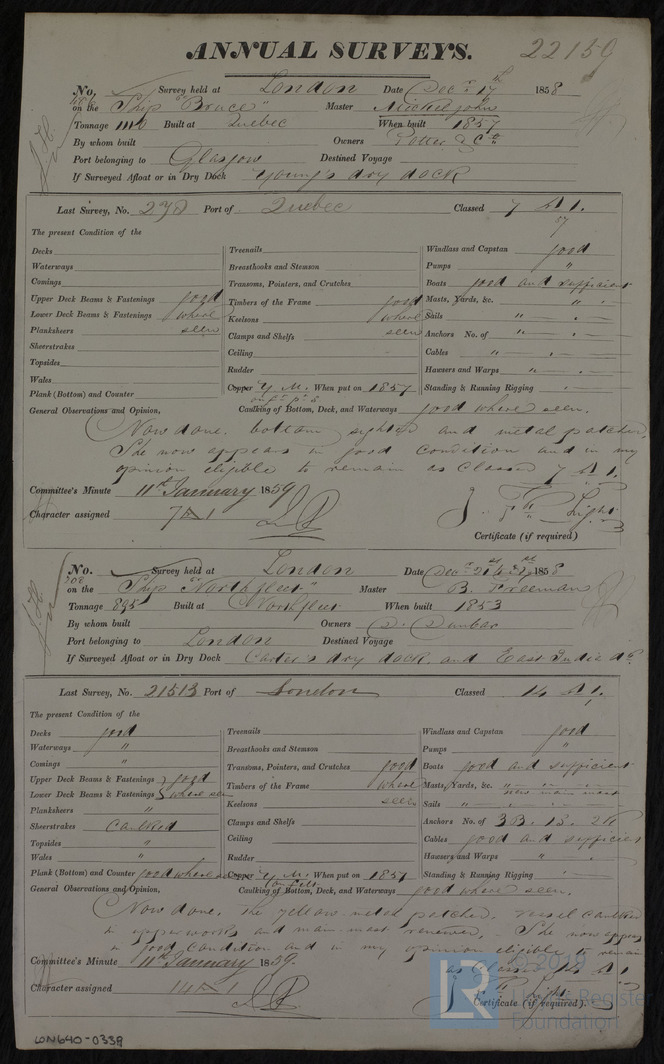 ANNUAL SURVEYS. 22159
No. Survey held at London Date Dec. 17th 1858
on the Ship "Bruce" Master Mickeljohn
Tonnage 1118 Built at Quebec When built 1857
By whom built Owners Potter & Co
Port belonging to Glasgow Destined Voyage
If Surveyed Afloat or in Dry Dock Young's dry dock
Last Survey, No. Port of Quebec Classed 7 A 1.
57
The present Condition of the
Decks Treenails Windlass and Capstan good
Waterways Breasthooks and Stemson Pumps "
Comings Transoms, Pointers, and Crutches Boats good and sufficient
Upper Deck Beams & Fastenings good Timbers of the Frame good Masts, Yards, &c. " "
Lower Deck Beams & Fastenings where Keelsons where Sails " "
Planksheers seen Clamps and Shelfs seen Anchors No. of " "
Sheerstrakes Ceiling Cables " "
Topsides Rudder Hawsers and Warps " "
Wales Copper Y. M. When put on 1857 Standing & Running Rigging "
Plank (Bottom) and Counter
General Observations and Opinion, Caulking of Bottom, Deck, and Waterways good where seen.
Now done. bottom sighted and metal patched,
She now appears in good condition and in my
opinion eligible to remain as Classed 7 A 1.
Committee's Minute 11th January 1859
Character assigned 7 A 1 Light
Certificate (if required)
No. Survey held at London Date Dec 1858
on the Ship "Northfleet" Master B. Freeman
Tonnage 895 Built at Northfleet When built 1853
By whom built Owners D. Dunbar
Port belonging to London Destined Voyage
If Surveyed Afloat or in Dry Dock Carter's dry dock. and East India do.
Last Survey, No. 21513 Port of London Classed 14 A 1.
The present Condition of the
Decks good Treenails Windlass and Capstan good
Waterways " Breasthooks and Stemson Pumps "
Comings " Transoms, Pointers, and Crutches good Boats good and sufficient
Upper Deck Beams & Fastenings good Timbers of the Frame where Masts, Yards, &c. " new main mast
Lower Deck Beams & Fastenings where seen Keelsons seen Sails " "
Planksheers " Clamps and Shelfs Anchors No. of 3B. 1S. 2K
Sheerstrakes Caulked Ceiling Cables good and sufficient
Topsides " Rudder Hawsers and Warps "
Wales " Copper Y. M. When put on 1857 Standing & Running Rigging "
Plank (Bottom) and Counter good where seen on felt
General Observations and Opinion, Caulking of Bottom, Deck, and Waterways good where seen.
Now done. the yellow metal patched, vessel caulked
in upperworks and main-mast renewed. She now appears
in good condition and in my opinion eligible to remain
as Classed 14 A 1
Committee's Minute 11th January 1859.
Character assigned 14 A 1 Light
Certificate (if required).
LR © 2019
Lloyd's Register
Foundation
LON640-0339